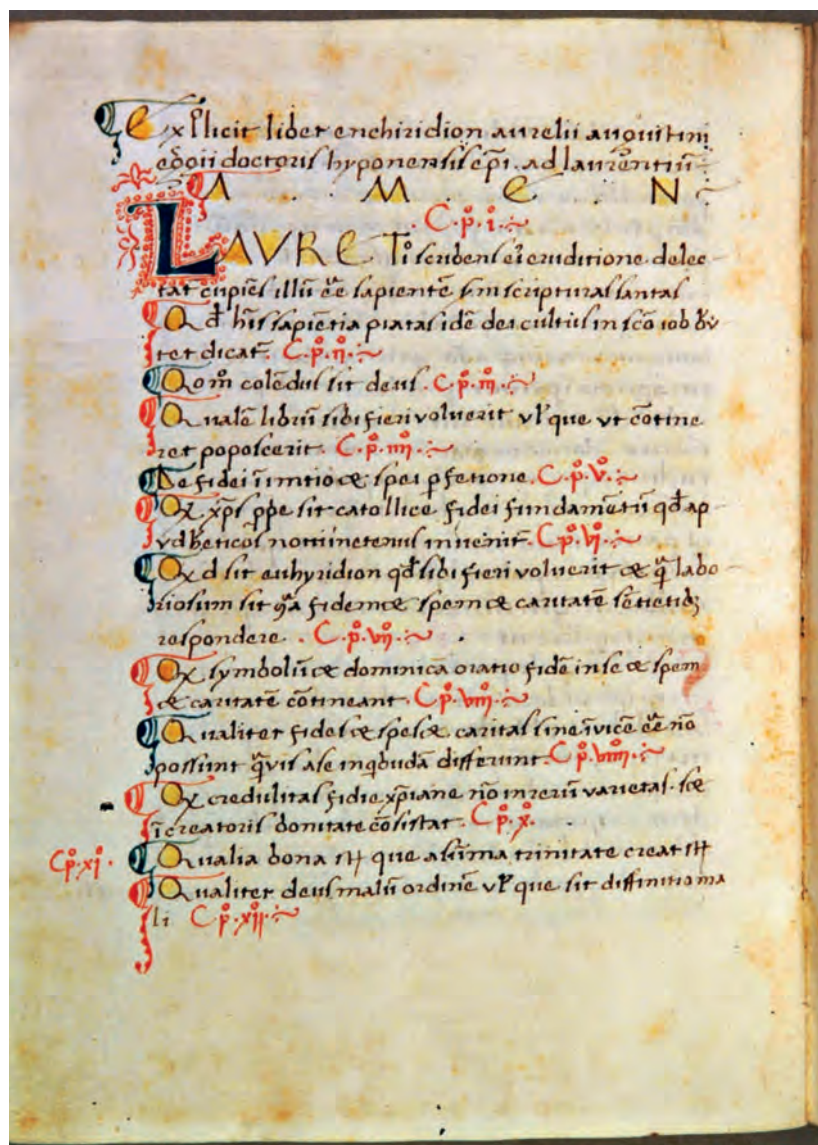 Explicit liber enchiridion aurelii augustini
egregii doctoris hyponensis ep̄i. ad laurentiū
A M E N
C.p̊.i.
LAVRETi̊ scribens ei eruditione delec
tat cupiēs illū eē sapientē scripturas santas
Qd̄ hīs sapiētia piatas idē dei cultus in sc̄o iob
tet dicat̄. C.p̊.ii.
Qom̄ colēdus sit deus. C.p̊.iii.
Qualē librū sibi fieri voluerit vl̄ que vt cōtine
ret poposcerit. C.p̊.iiii.
De fidei īintio & spei pfetione. C.p̊.v.
Q xp̄s ppe sit catollice fidei fundamētū qd̄ ap
vd inuenit̄ C.p̊.vi.
Qd sit enhyridion qd̄ sibi fieri voluerit & labo
riosum sit fidem & spem & caritatē
respondere. C.p̊.vii.
Q symbolū & dominica oratio fidē in se & spem
& caritatē cōtineant. C.p̊.viii.
Qualiter fides & spes & caritas sine īuicē eē nō
possunt q̄vis ase inqbudā differunt. C.p̊.viiii.
Q credulitas fidie xp̄iane nō in rerū varietas. s &
ī creatoris bonitate cōsistat. C.p̊.x.
C.p̊.xi. Qualia bona st̄ que a suma trinitate creat st̄
Qualiter deus malū ordinē vl̄ que sit diffinitio ma
li C.p̊.xii.